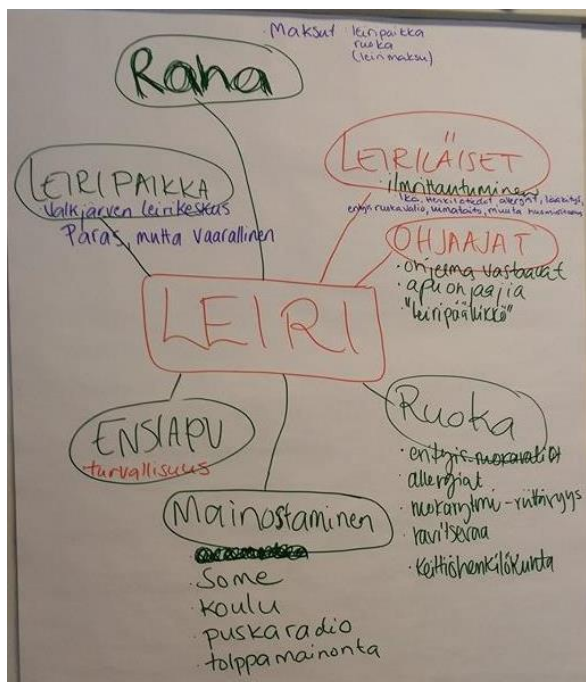 · Maksut · leiripaikka
ruoka
(leirimaksu)
Raha
LEIRIPAIKKA
· Valkjärven leirikeskus
Paras, mutta vaarallinen
LEIRILÄISET
· ilmoittautuminen
Ikä, Henkilötiedot, allergiat, lääkitys,
erityisruokavalio, uimataito, muuta
OHJAAJAT
· ohjelma vastaavat
· apuohjaajia
· "leiripäällikkö"
LEIRI
ENSIAPU
turvallisuus
Ruoka
· erityis ruokavaliot
· allergiat
· ruokarytmi - riittävyys
· ravitsevaa
· keittiöhenkilökunta
Mainostaminen
· Some
· koulu
· puskaradio
· tolppamainonta